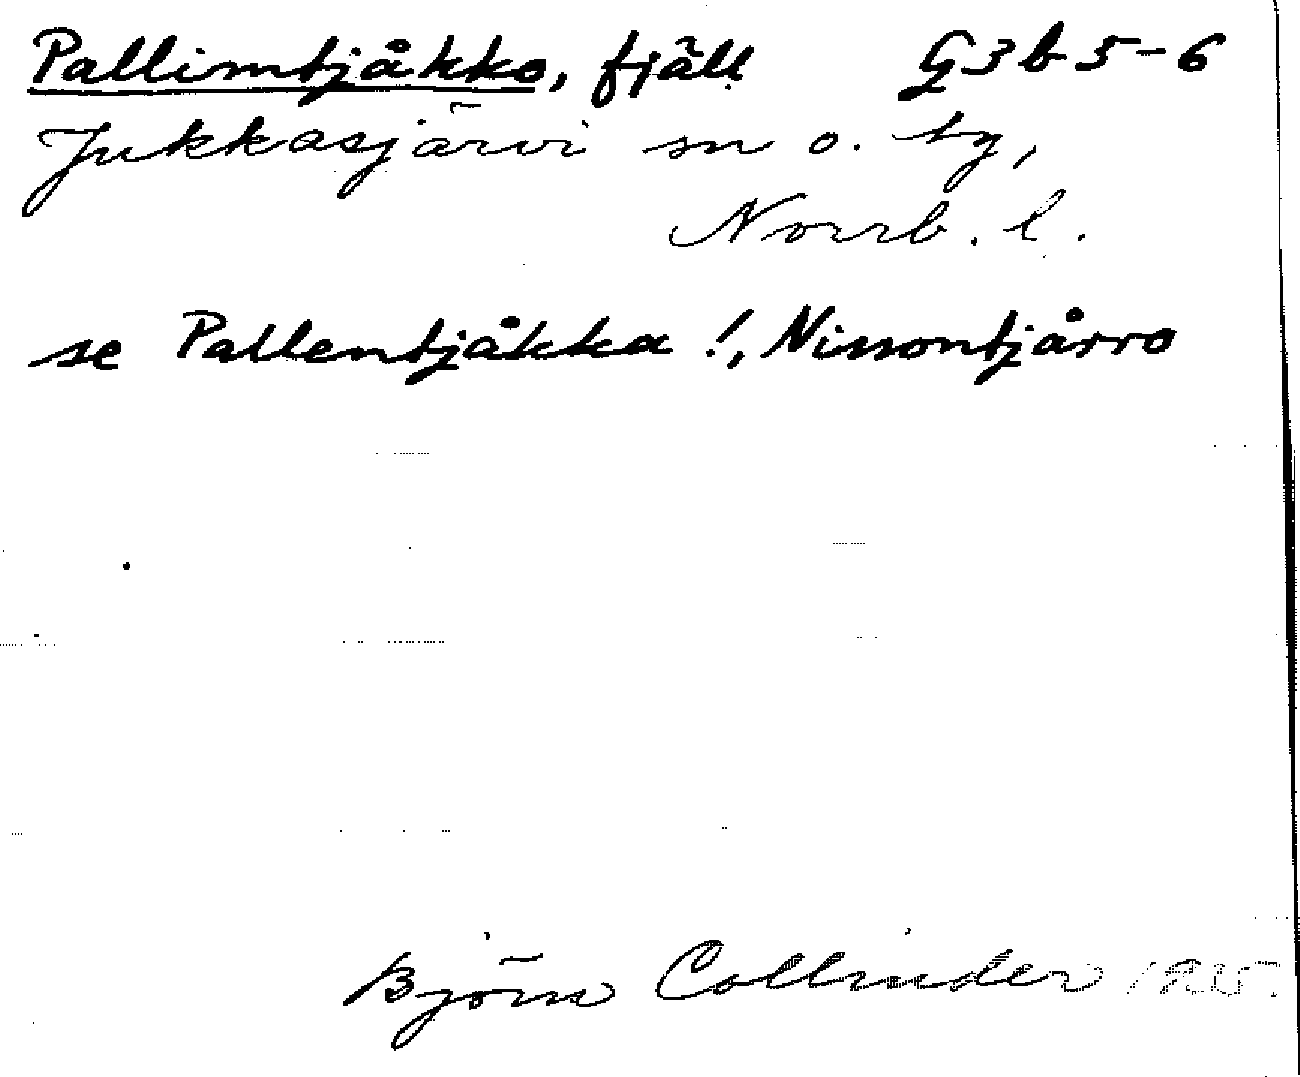 Pallimtjåkko, fjäll G3b5-6
Jukkasjärvi sn o. tg,
Norrb. l.
se Pallentjåkka!, Nissontjårro
Björn Collinder